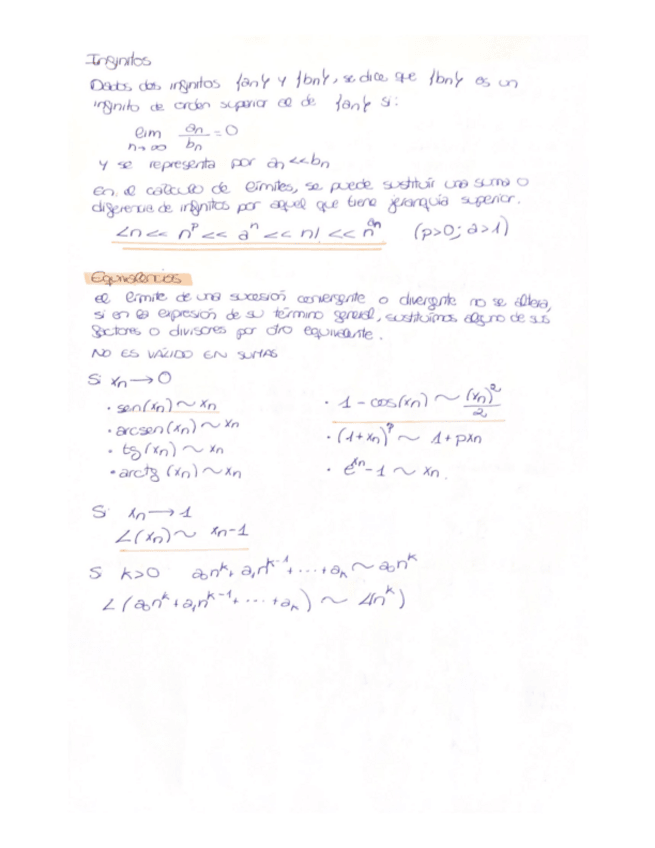 Infinitos
Dados dos infinitos {an} y {bn}, se dice que {bn} es un
infinito de orden superior al de {an} si:
lim n→∞ an/bn = 0
y se representa por an << bn
En el cálculo de límites, se puede sustituir una suma o
diferencia de infinitos por aquel que tiene jerarquía superior.
Ln << n^p << a^n << n! << n^an (p>0; a>1)
Equivalencias
el límite de una sucesión convergente o divergente no se altera,
si en la expresión de su término general, sustituimos alguno de sus
factores o divisores por otro equivalente.
NO ES VÁLIDO EN SUMAS
Si xn → 0
· sen(xn) ~ xn
· arcsen(xn) ~ xn
· tg(xn) ~ xn
· arctg(xn) ~ xn
· 1 - cos(xn) ~ (xn)^2/2
· (1+xn)^p ~ 1 + pxn
· e^xn - 1 ~ xn.
Si xn → 1
L(xn) ~ xn - 1
Si k>0 a0n^k + a1n^k-1 + ... + ak ~ a0n^k
L(a0n^k + a1n^k-1 + ... + ak) ~ L(n^k)